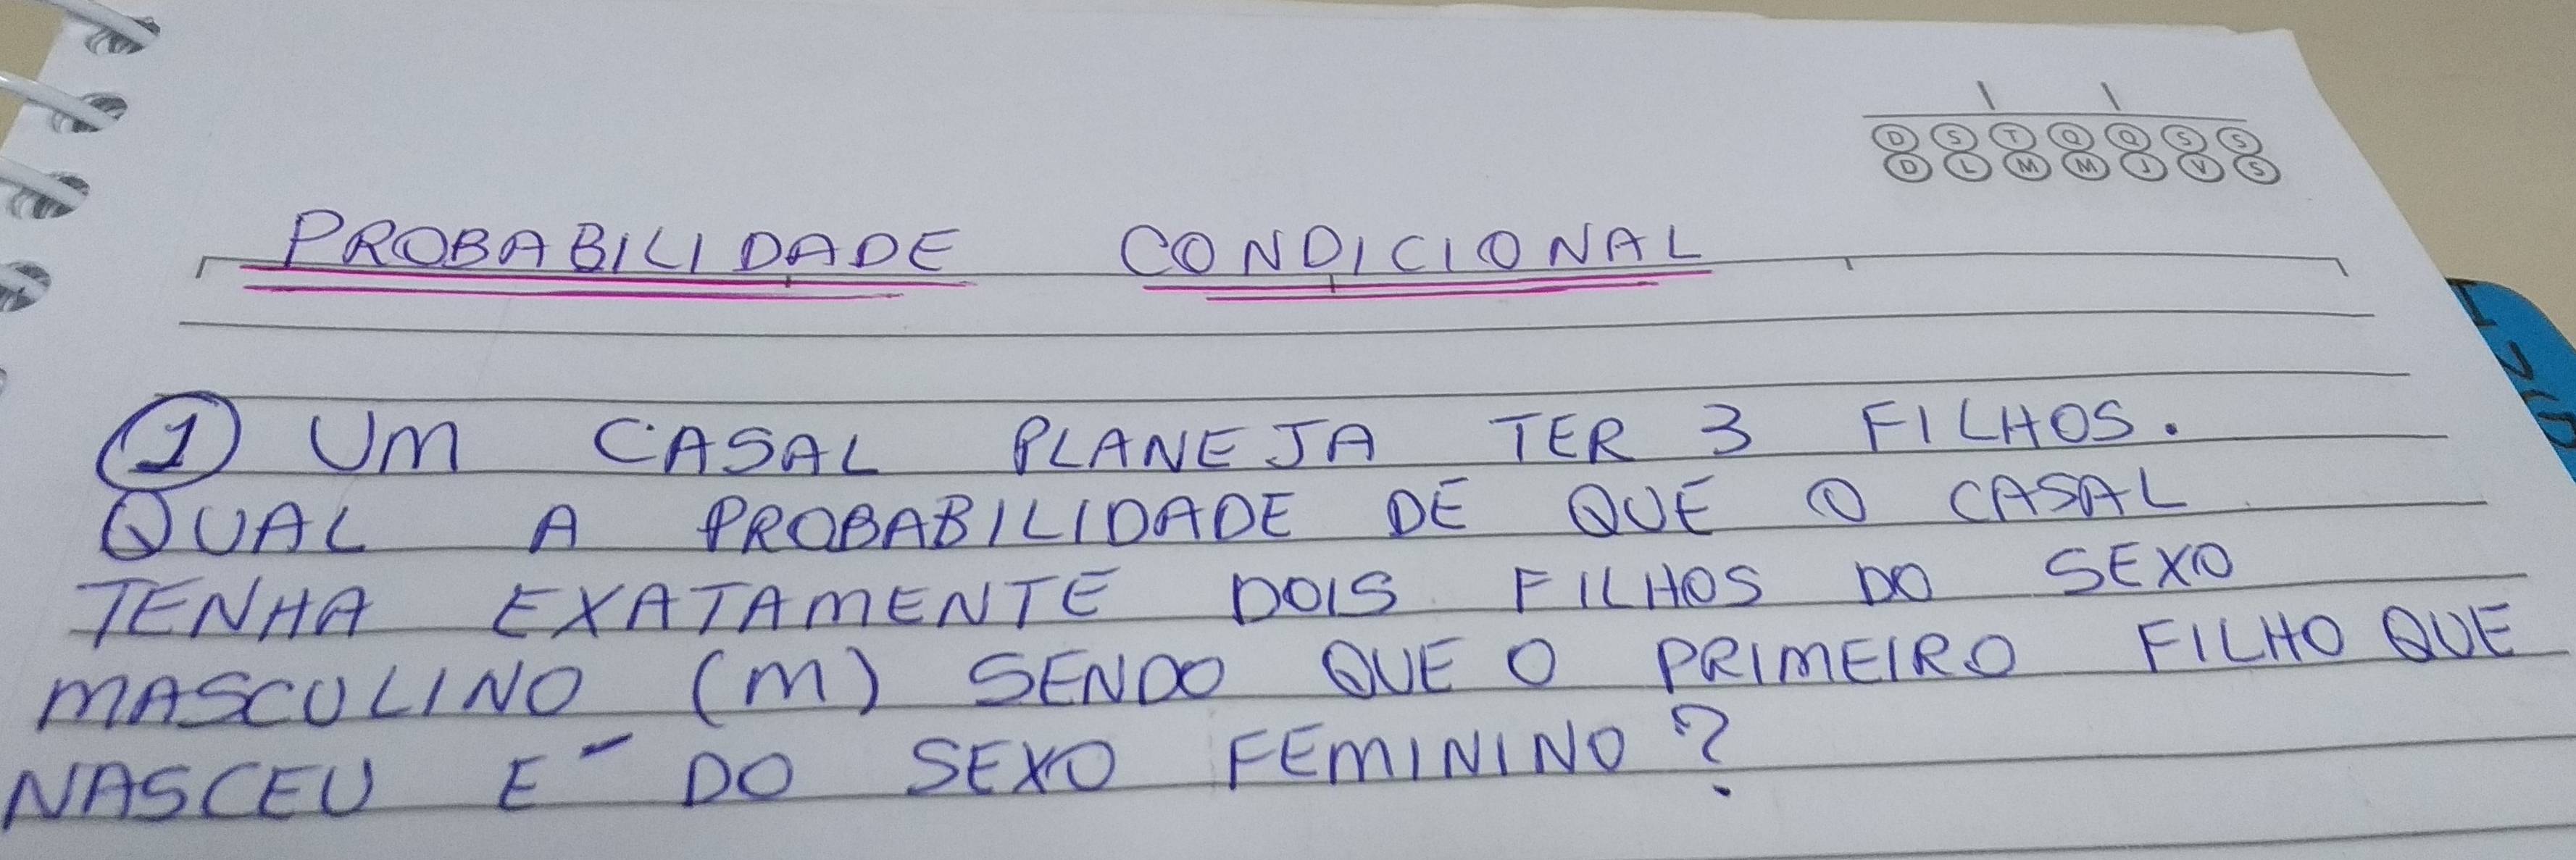 D S T Q Q S S
D L M M J V S
PROBABILIDADE CONDICIONAL
1 UM CASAL PLANEJA TER 3 FILHOS.
QUAL A PROBABILIDADE DE QUE O CASAL
TENHA EXATAMENTE DOIS FILHOS DO SEXO
MASCULINO (M) SENDO QUE O PRIMEIRO FILHO QUE
NASCEU É DO SEXO FEMININO?